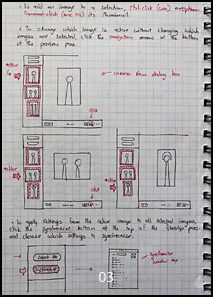 • To add an image to a selection, Ctrl-click (Win) or
Command-click (Mac OS) its thumbnail
• To change which image is active without changing which
images are selected, click the navigation arrows at the bottom
of the preview pane.
active
camera raw dialog box
click
active
active
click
• To apply settings from the active image to all selected images,
click the synchronize button at the top of the filmstrip pane
and choose which settings to synchronize.
Select All
Synchronize
Synchronize
03